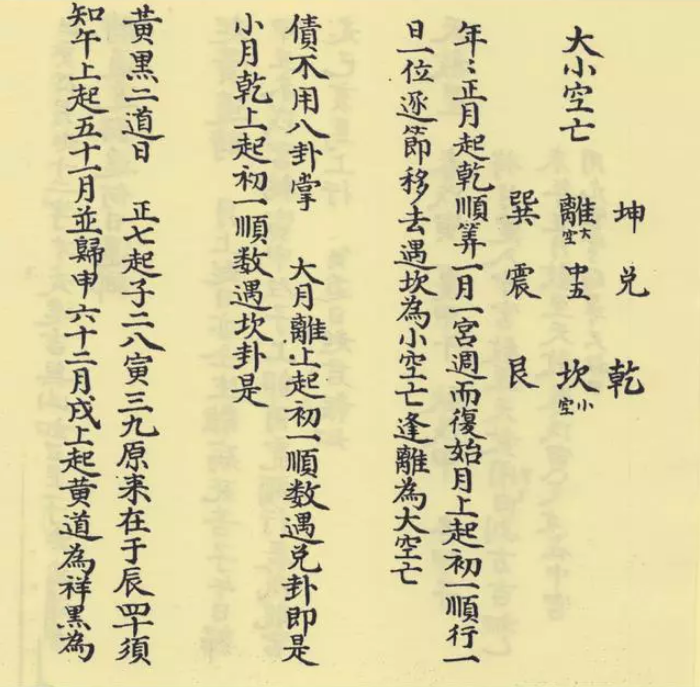 大小空亡
坤 兌 乾
離大空 中五 坎小空
巽 震 艮
年〻正月起乾順筭一月一宮週而復始月上起初一順行一
日一位逐節移去遇坎為小空亡逢離為大空亡
債不用八卦掌 大月離上起初一順数遇兌卦即是
小月乾上起初一順数遇坎卦是
黃黑二道日 正七起子二八寅三九原来在于辰四十須
知午上起五十一月並歸申六十二月戌上起黄道為祥黑為